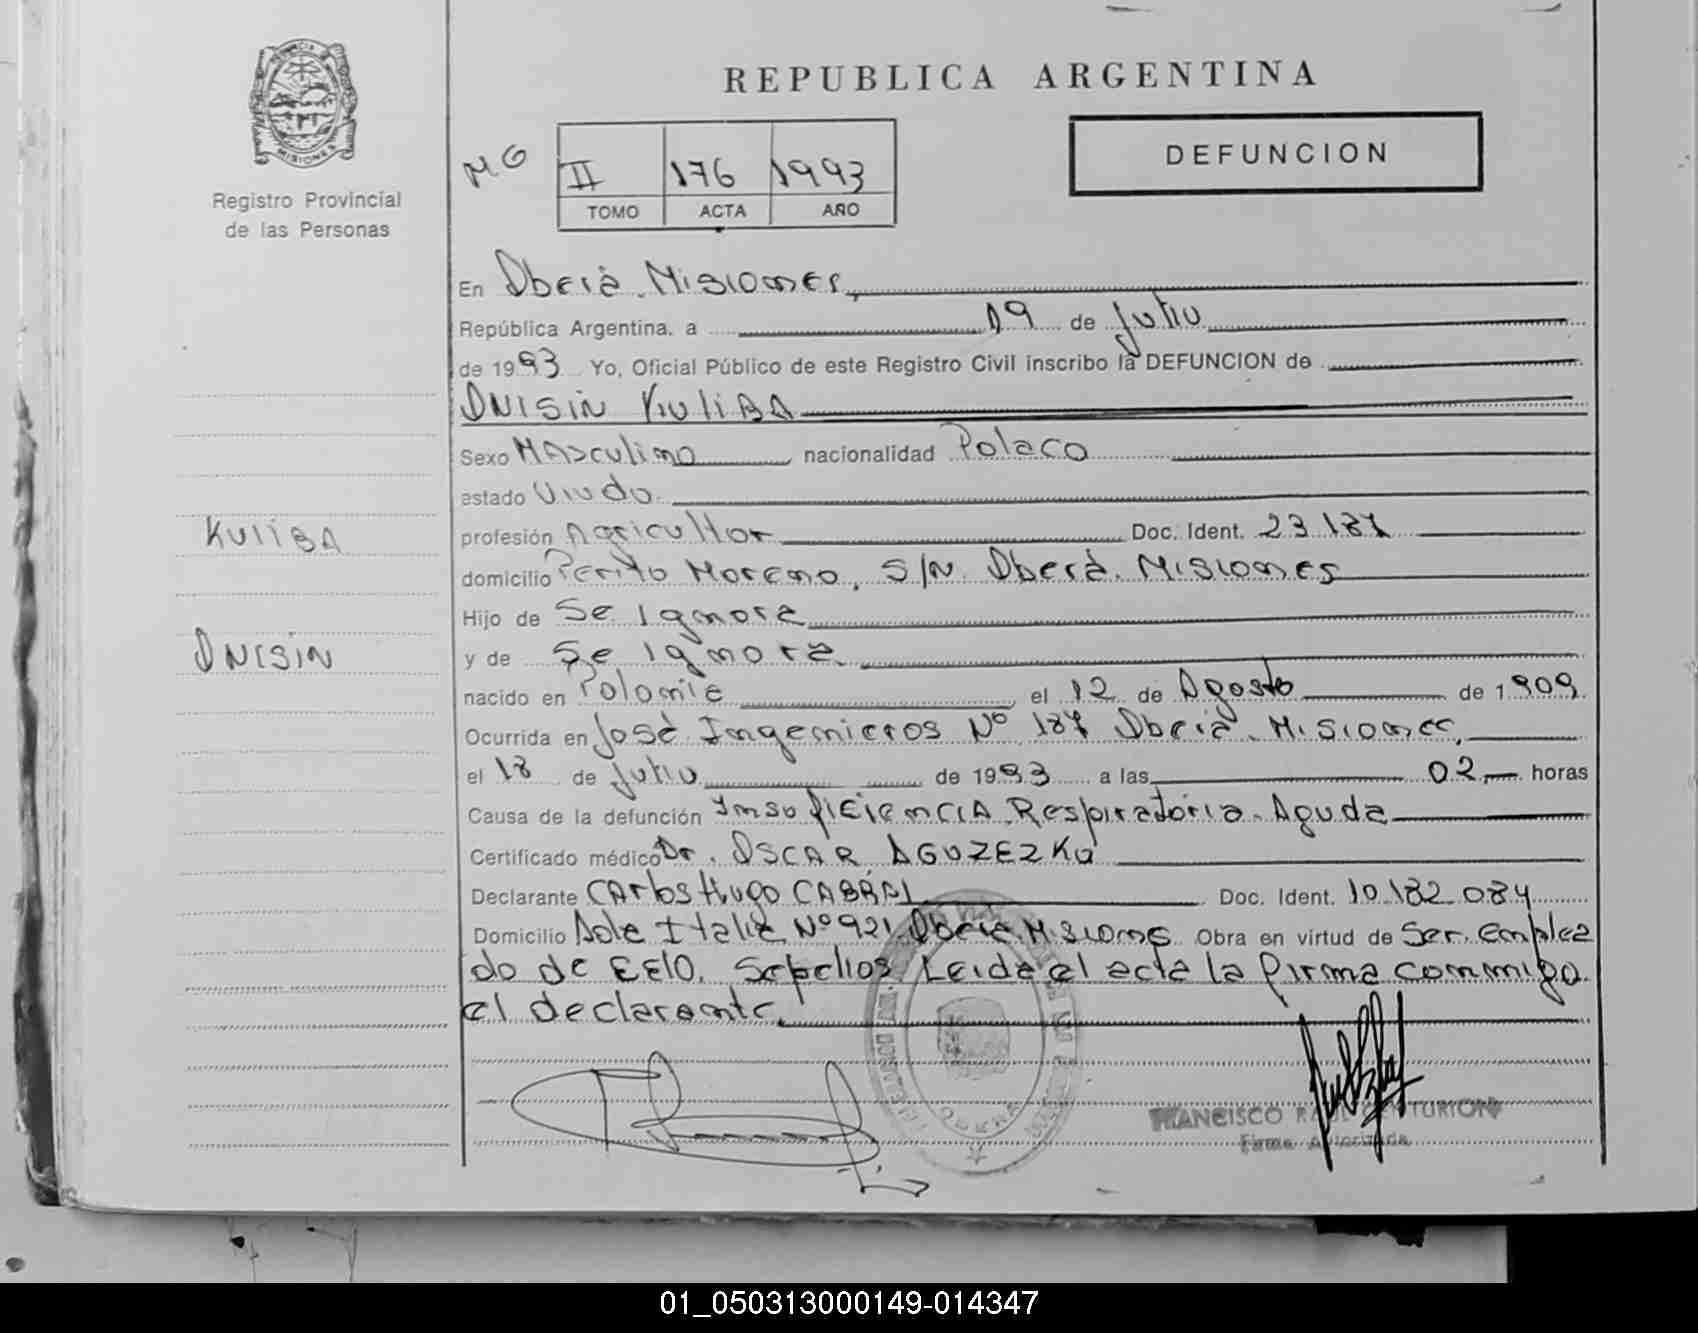 REPUBLICA ARGENTINA
MISIONES
Registro Provincial
de las Personas
MG
II 176 1993
TOMO ACTA AÑO
DEFUNCION
En Oberá. Misiones,
República Argentina. a 19 de Julio
de 1993 Yo, Oficial Público de este Registro Civil inscribo la DEFUNCION de
ONISIN KULIBA
Sexo Masculino nacionalidad Polaco
estado Viudo.
profesión Agricultor Doc. Ident. 23.187
domicilio Perito Moreno, S/N. Oberá. Misiones
Hijo de Se Ignora
y de Se Ignora
nacido en Polonia el 12 de Agosto de 1909
Ocurrida en José Ingenieros Nº 187 Oberá. Misiones,
el 18 de Julio de 1993 a las 02,— horas
Causa de la defunción Insuficiencia Respiratoria Aguda
Certificado médico Dr. OSCAR AGUZEZKO
Declarante Carlos Hugo CABRAL Doc. Ident. 10.182.084
Domicilio Italia Nº 921 Oberá. Misiones Obra en virtud de Ser. emplea
do de Sepelios Leida el acta la firma conmigo
el declarante.
KULIBA
ONISIN
FRANCISCO RAUL CENTURION
Firma Autorizada
01_050313000149-014347